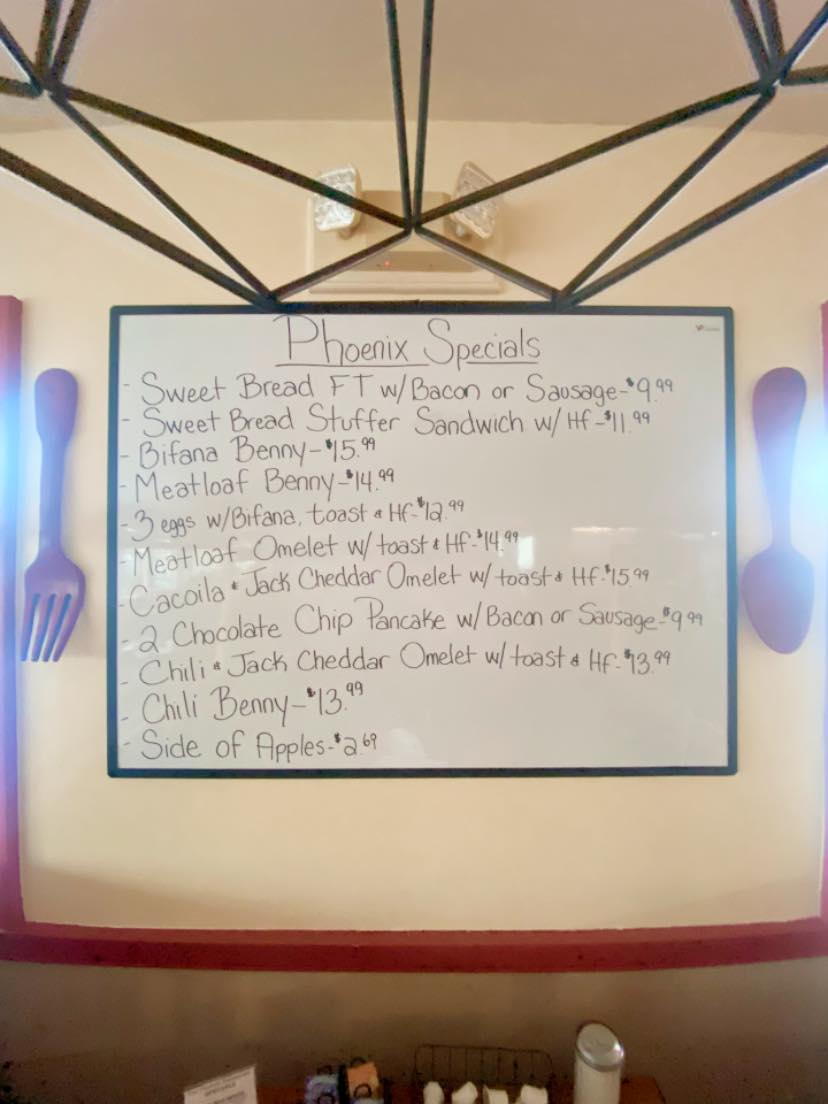 Phoenix Specials
- Sweet Bread FT w/Bacon or Sausage-$9.99
- Sweet Bread Stuffer Sandwich w/ Hf-$11.99
- Bifana Benny-$15.99
- Meatloaf Benny-$14.99
- 3 eggs w/Bifana, toast & Hf-$12.99
- Meatloaf Omelet w/ toast & Hf-$14.99
- Cacoila & Jack Cheddar Omelet w/ toast & Hf-$15.99
- 2 Chocolate Chip Pancake w/ Bacon or Sausage-$9.99
- Chili & Jack Cheddar Omelet w/ toast & Hf-$13.99
- Chili Benny-$13.99
- Side of Apples-$2.69